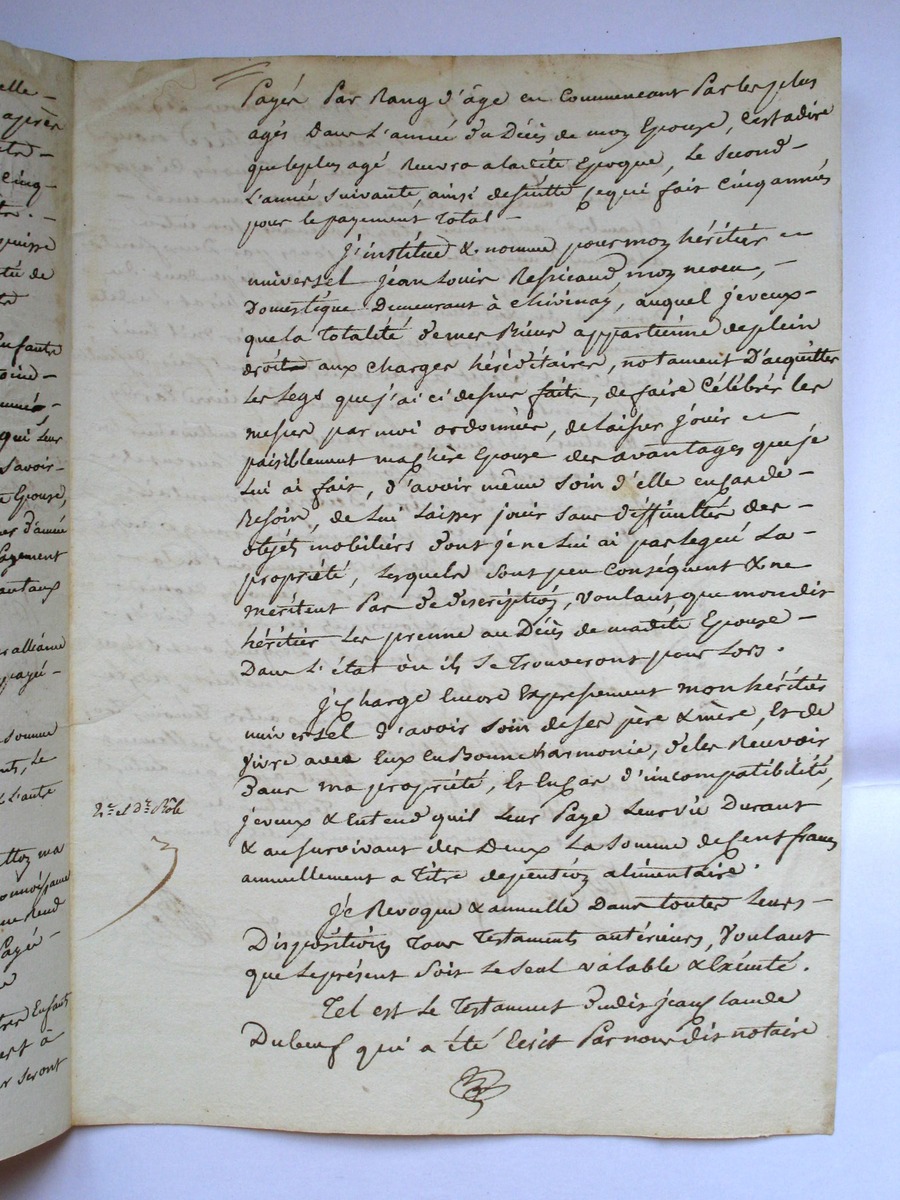 elle-
après
cinq-
puisse
enfants
qui leur
savoir-
Epouse,
d'année
payement
alliéaine
payé-
somme
Le
L'autre
ma
Rend
Payé-
Enfants
seront
Payés Par Rang d'âge en Commencant Par les plus
agés Dans L'année du Décès de mon Epouse, C'est adire
que le plus agé Recevra a ladite Epoque, Le Second-
L'année suivante, ainsi desuitte ce qui fait Cinq années
pour le payement Total-
J'institue & nomme pour mon héritier -
universel jean Louis Ressicaud mon neveu, -
Domestique Demeurant à chivinay, auquel je veux-
que la Totalité de mes Biens appartienne de plein
droit aux charges héréditaires, notament D'acquitter
Les Legs que j'ai ci dessus faits, de faire Célébrer les
messes par moi ordonnées, de Laisser jouir -
paisiblement ma chère Epouse des avantages que je
Lui ai fait, d'avoir même soin d'elle en Cas de-
Besoin, de Lui Laisser jouir sans difficultés des-
objets mobiliers dont je ne Lui ai pas legué La-
propriété, Lesquels sont peu Conséquent & ne
méritent Pas de description, voulant que mondit
héritier Les prenne au Décès de madite Epouse-
Dans L'état où ils se Trouveront pour Lors.
Je Charge Encore Expressement mon héritier
universel d'avoir soin de ses père & mère, Et de
vivre avec Eux en Bonne harmonie, de les Recevoir
Dans ma propriété, Et en Cas d'incompatibilité,
je veux & Entend qu'il Leur Paye Leur vie Durant
& au survivant des Deux La somme de Cent francs
annuellement a Titre de pention alimentaire.
2e et Dr. Rôle
Je Revoque & annulle Dans toutes Leurs-
Dispositions Tous Testaments antérieurs, voulant
que Le présent soit Le seul valable & Exécuté.
Tel est Le Testament dudit jean Claude
Dubeuf qui a été Ecrit Par nous dit notaire